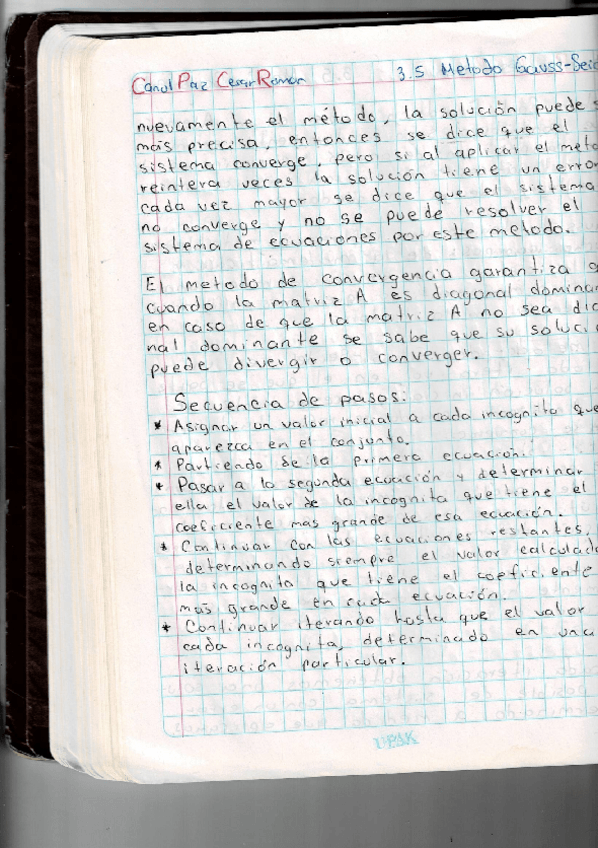 Canul Paz Cesar Roman 3.5 Metodo Gauss-Seid
nuevamente el método, la solución puede s
más precisa, entonces se dice que el
sistema converge, pero si al aplicar el meto
reintera veces la solución tiene un error
cada vez mayor se dice que el sistema
no converge y no se puede resolver el
sistema de ecuaciones por este metodo.
El metodo de convergencia garantiza q
cuando la matriz A es diagonal dominan
en caso de que la matriz A no sea dia
nal dominante se sabe que su soluci
puede divergir o converger.
Secuencia de pasos:
* Asignar un valor inicial a cada incognita que
aparezca en el conjunto.
* Partiendo de la primera ecuación.
* Pasar a la segunda ecuación y determinar
ella el valor de la incognita que tiene el
coeficiente mas grande de esa ecuación.
* Continuar con las ecuaciones restantes,
determinando siempre el valor calculado
la incognita que tiene el coeficiente
mas grande en cada ecuación.
* Continuar iterando hasta que el valor
cada incognita, determinado en una
iteración particular.